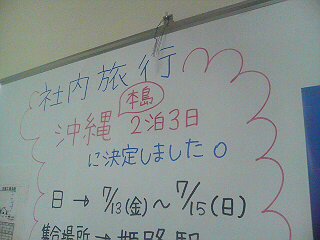 社内旅行
沖縄本島2泊3日
に決定しました。
日→7/13(金)～7/15(日)
集合場所→姫路駅